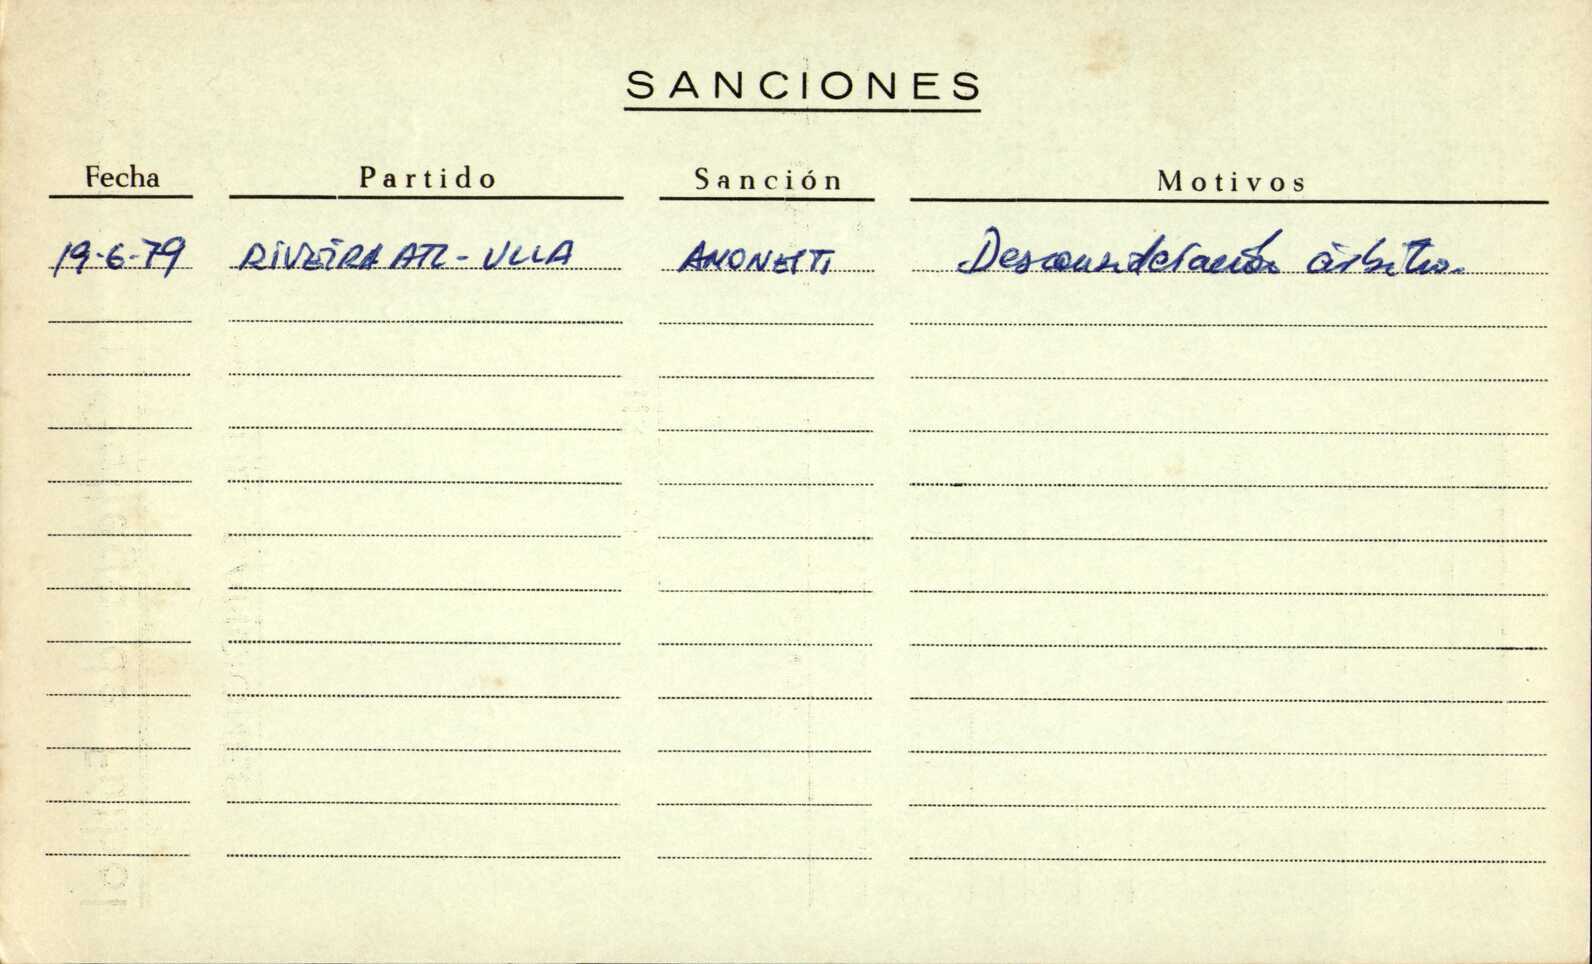 SANCIONES
Fecha Partido Sanción Motivos
19-6-79 RIVEIRA ATL - ULLA AMONESTI Desconsideración árbitro.